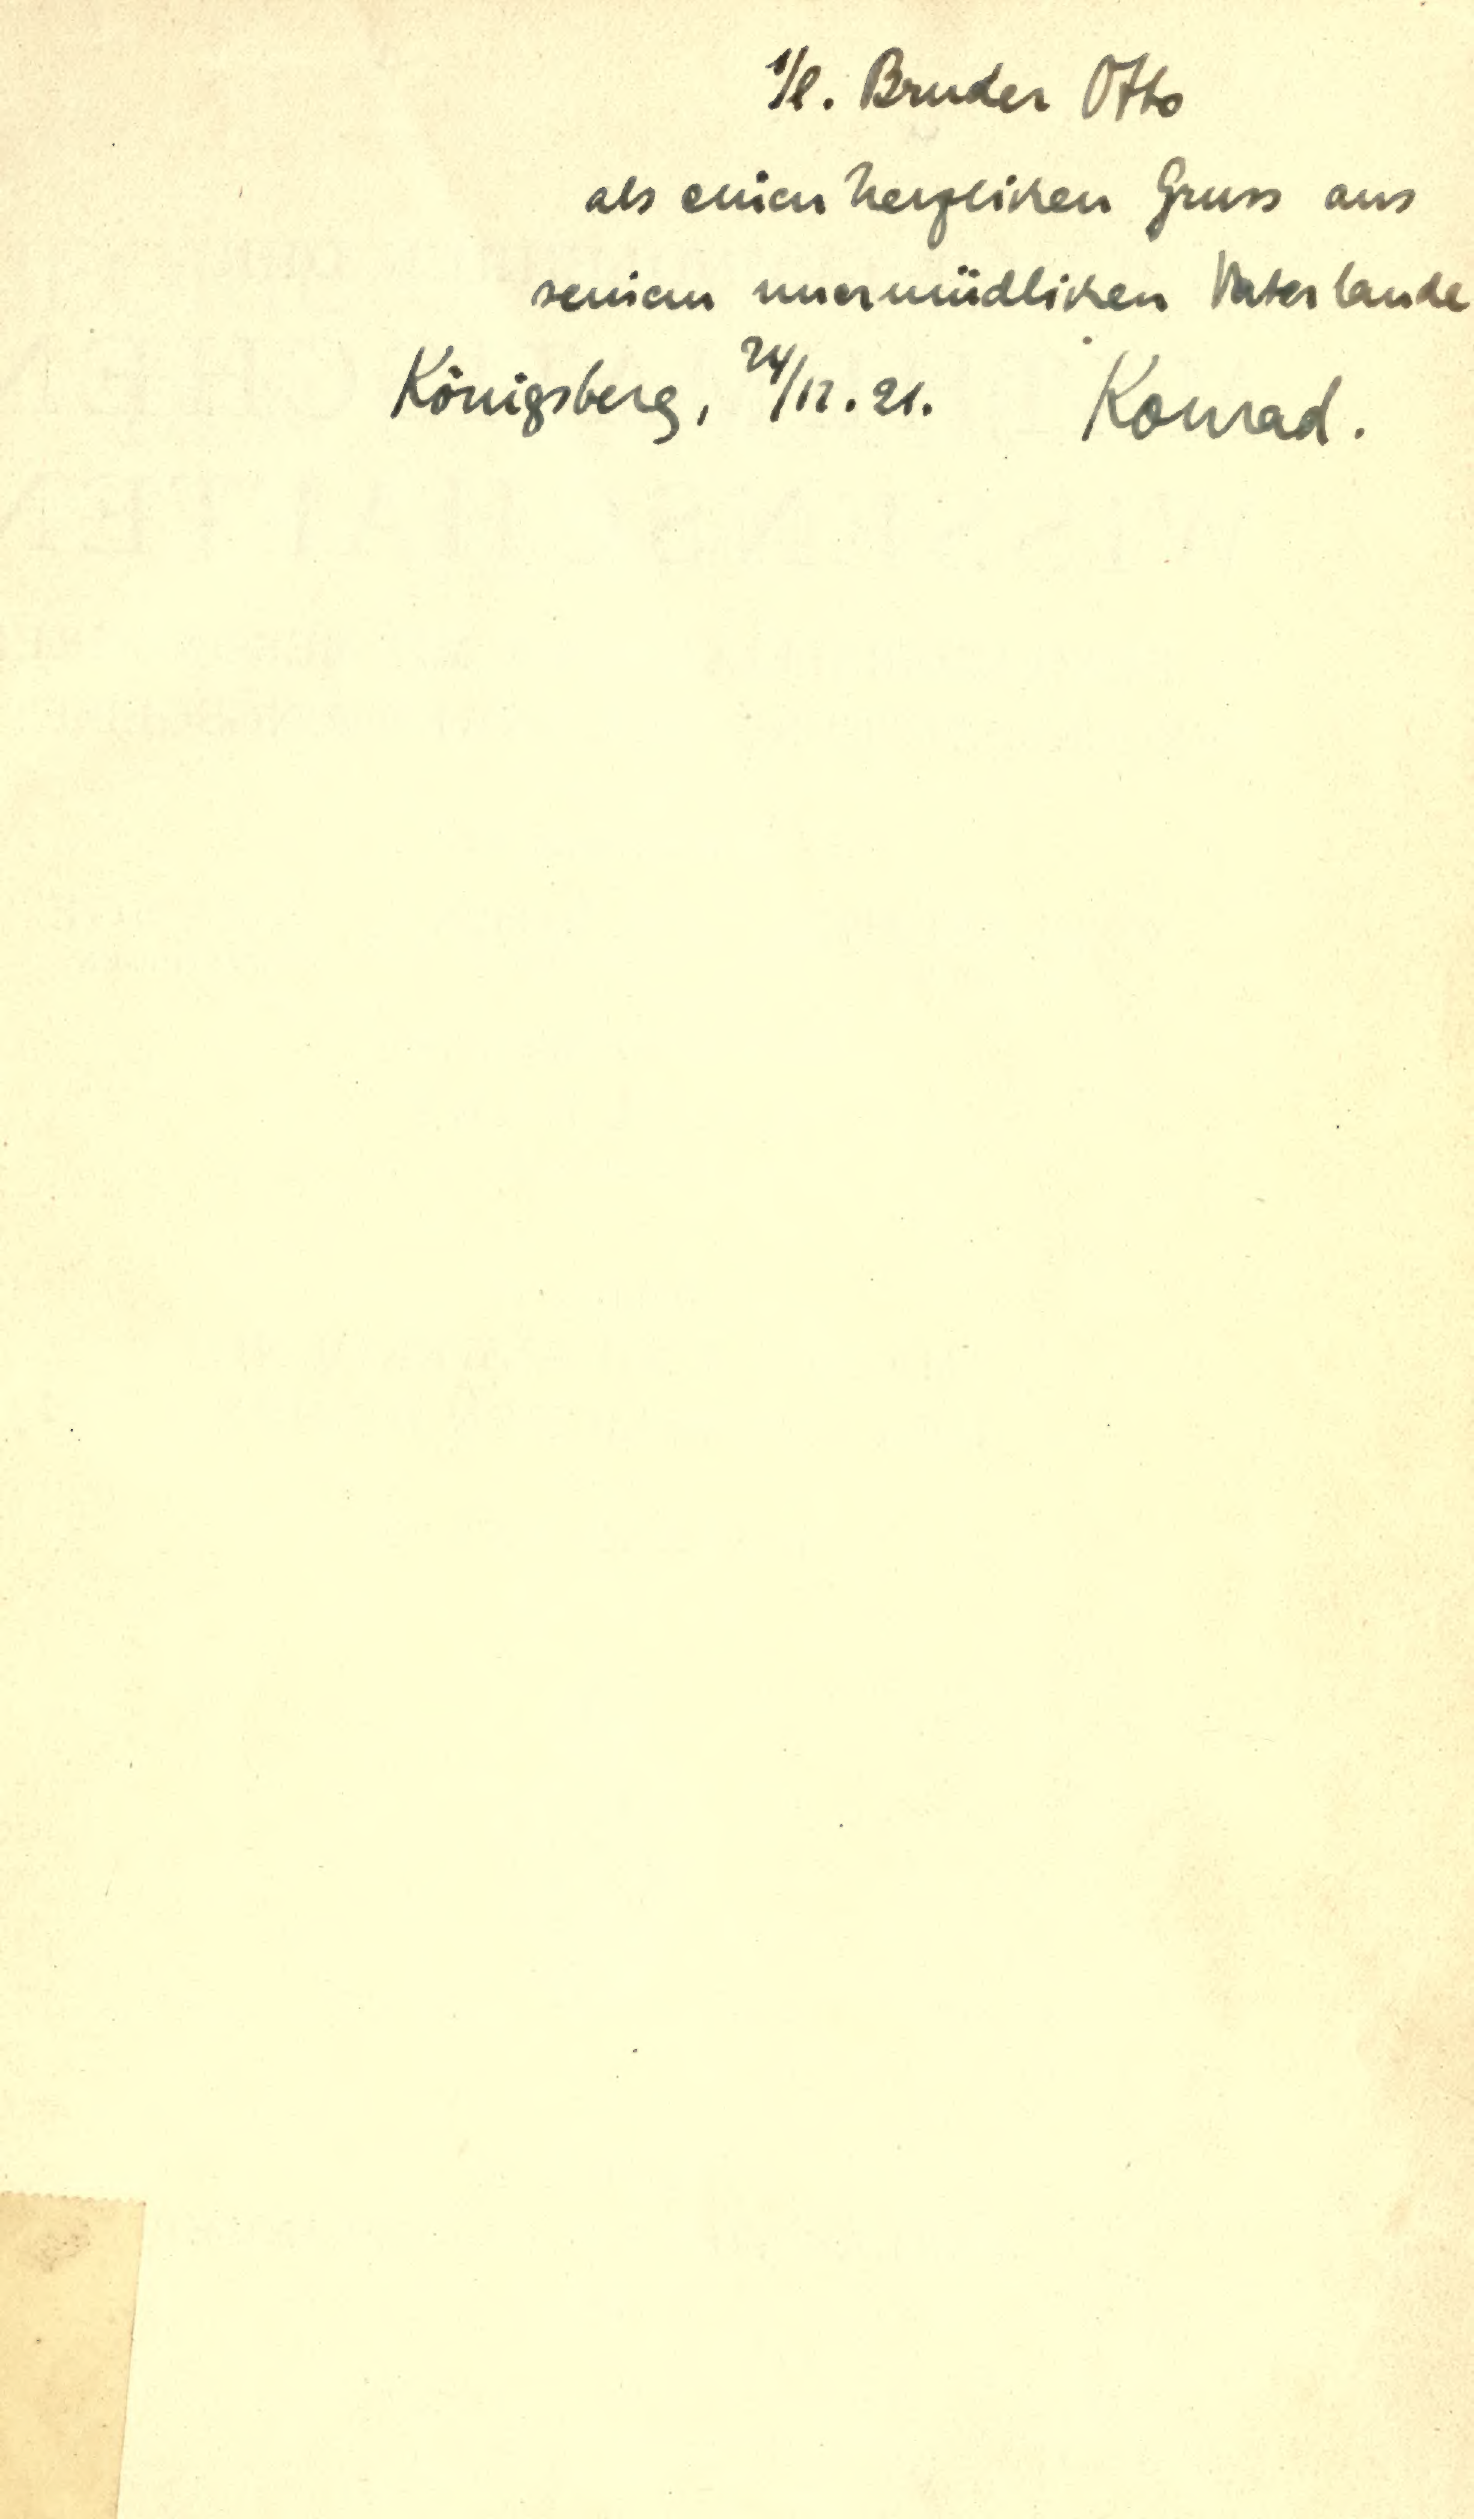 s/l. Bruder Otto
als einen herzlichen Gruss aus
seinem unermüdlichen Vaterlande
Königsberg, 24/12.21. Konrad.